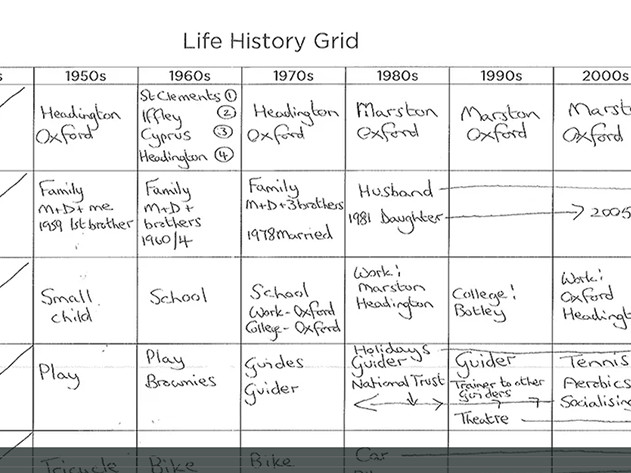 Life History Grid
s 1950s 1960s 1970s 1980s 1990s 2000s
Headington
Oxford
St Clements ①
Iffley ②
Cyprus ③
Headington ④
Headington
Oxford
Marston
Oxford
Marston
Oxford
Marst
Oxford
Family
M+D+me
1959 1st brother
Family
M+D+
brothers
1960/4
Family
M+D+3brothers
1978 Married
Husband
1981 Daughter
2005
Small
child
School
School
Work - Oxford
College - Oxford
Work:
Marston
Headington
College:
Botley
Work:
Oxford
Headingt
Play
Play
Brownies
Guides
Guider
Holidays
Guider
National Trust
Guider
Trainer to other
Guiders
Theatre
Tennis
Aerobics
Socialising
Tricycle
Bike
Bike
Car